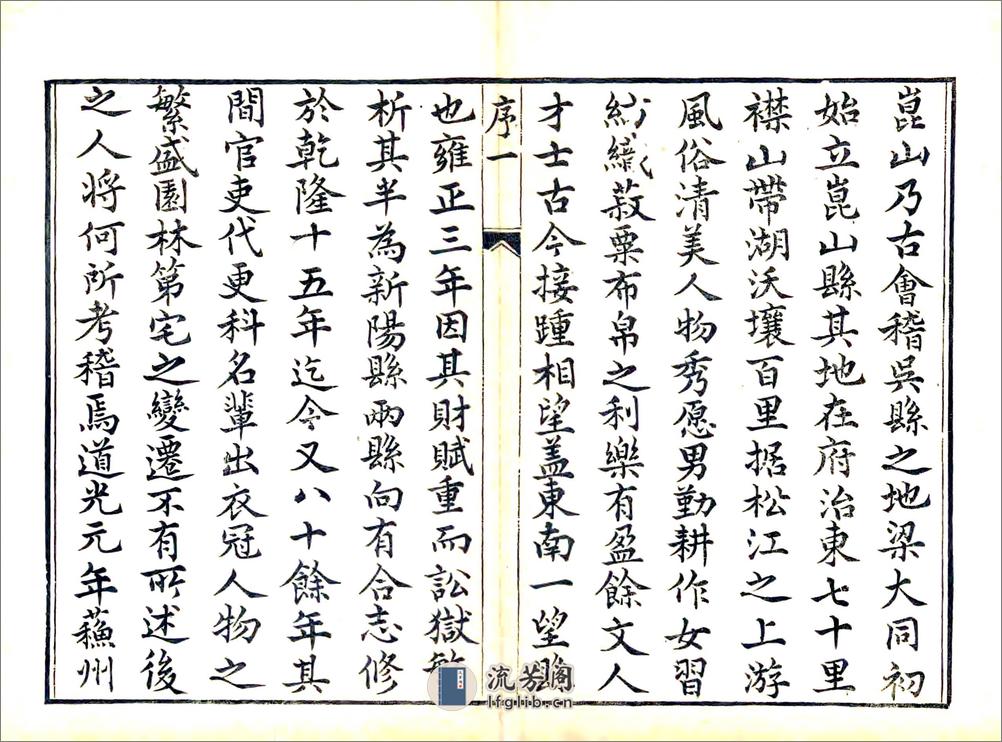 崑山乃古會稽吳縣之地梁大同初
始立崑山縣其地在府治東七十里
襟山帶湖沃壤百里据松江之上游
風俗清美人物秀愿男勤耕作女習
紡織菽粟布帛之利樂有盈餘文人
才士古今接踵相望盖東南一望縣
序一
也雍正三年因其財賦重而訟獄繁
析其半為新陽縣兩縣向有合志修
於乾隆十五年迄今又八十餘年其
間官吏代更科名輩出衣冠人物之
繁盛園林第宅之變遷不有所述後
之人將何所考稽焉道光元年蘓州
流芳閣
lfglib.cn